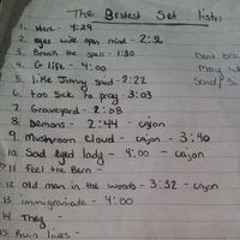 The Bestest Set list
1. Here - 4:29
2. Eyes wide open mind - 2:56
3. Break the spell - 1:30
4. G life - 4:00
5. Like Jonny said - 2:22
6. too sick to pray - 3:03
7. Graveyard - 2:08
8. Demons - 2:44 - cajon
9. Mushroom Cloud - cajon - 3:40
10. Sad Eyed lady - 4:00 - cajon
11. Feel the Bern -
12. old man in the woods - 3:32 - cajon
13. immigraniada - 4:00
14. They -
15. lives -
Dont
Play
Send